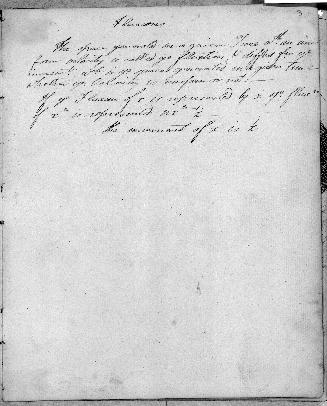 3
Fluxions
The space generated in a given Time with an uni
form velocity is called ye fluxion, & differs from ye
increment wch is ye space generated in a given time
whether ye velocity is uniform or not.
If ye Fluxion of x is represented by ẋ ye flux
of xn is represented nx ẋ
the increment of x is ẋ